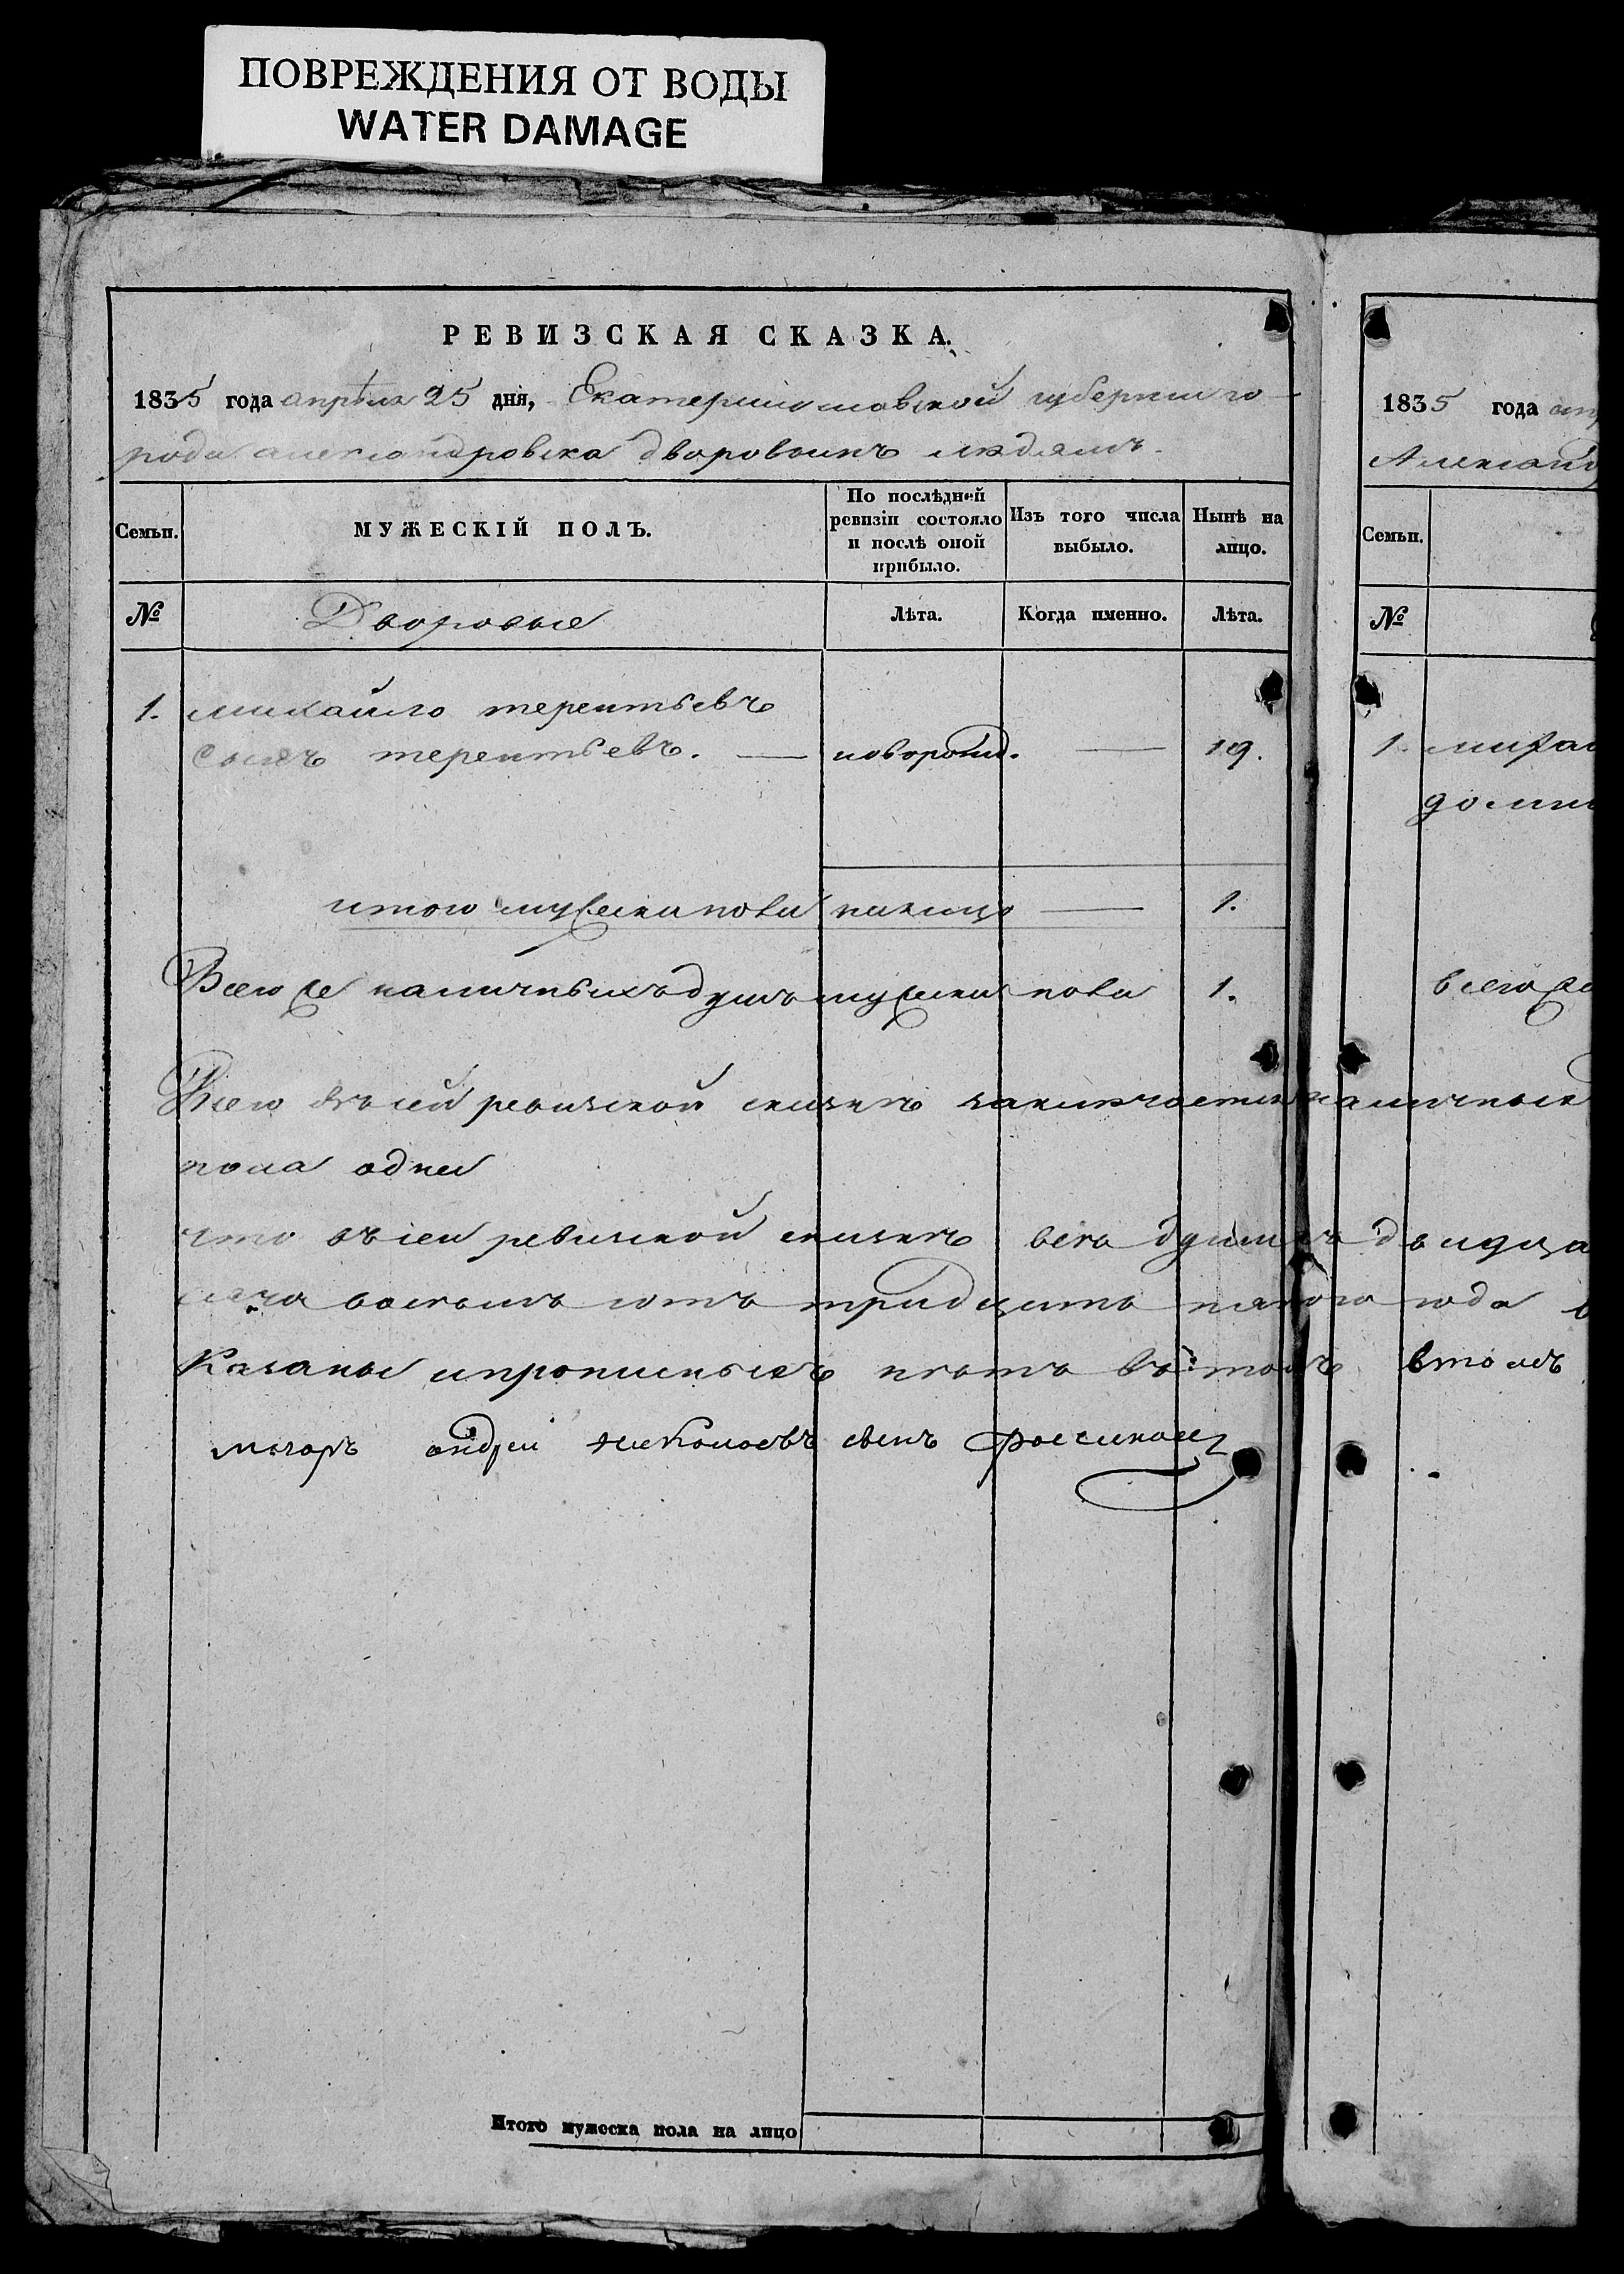 ПОВРЕЖДЕНИЯ ОТ ВОДЫ
WATER DAMAGE
РЕВИЗСКАЯ СКАЗКА.
1835 года апрѣля 25 дня, Екатеринославской губернии го
рода александровска дворовымъ людямъ.
Семьи.
МУЖЕСКІЙ ПОЛЪ.
По послѣдней ревизіи состояло и послѣ оной прибыло.
Изъ того числа выбыло.
Нынѣ на лицо.
№
Дворовые
Лѣта.
Когда именно.
Лѣта.
1. михайло терентьевъ
сынъ терентьевъ. — новорожд. — 19.
итого мужеска пола налицо — 1.
Всего же наличныхъ душъ мужеска пола 1.
Всего въ сей ревизской сказкѣ заключается наличныхъ
пола одна
что въ сей ревизской сказкѣ всѣ души
восемь сотъ тридцать пятого года
Казаны и прописныхъ нѣтъ
андрей николаевъ сынъ
Итого мужеска пола на лицо
1835 года
Семьи.
№
1.